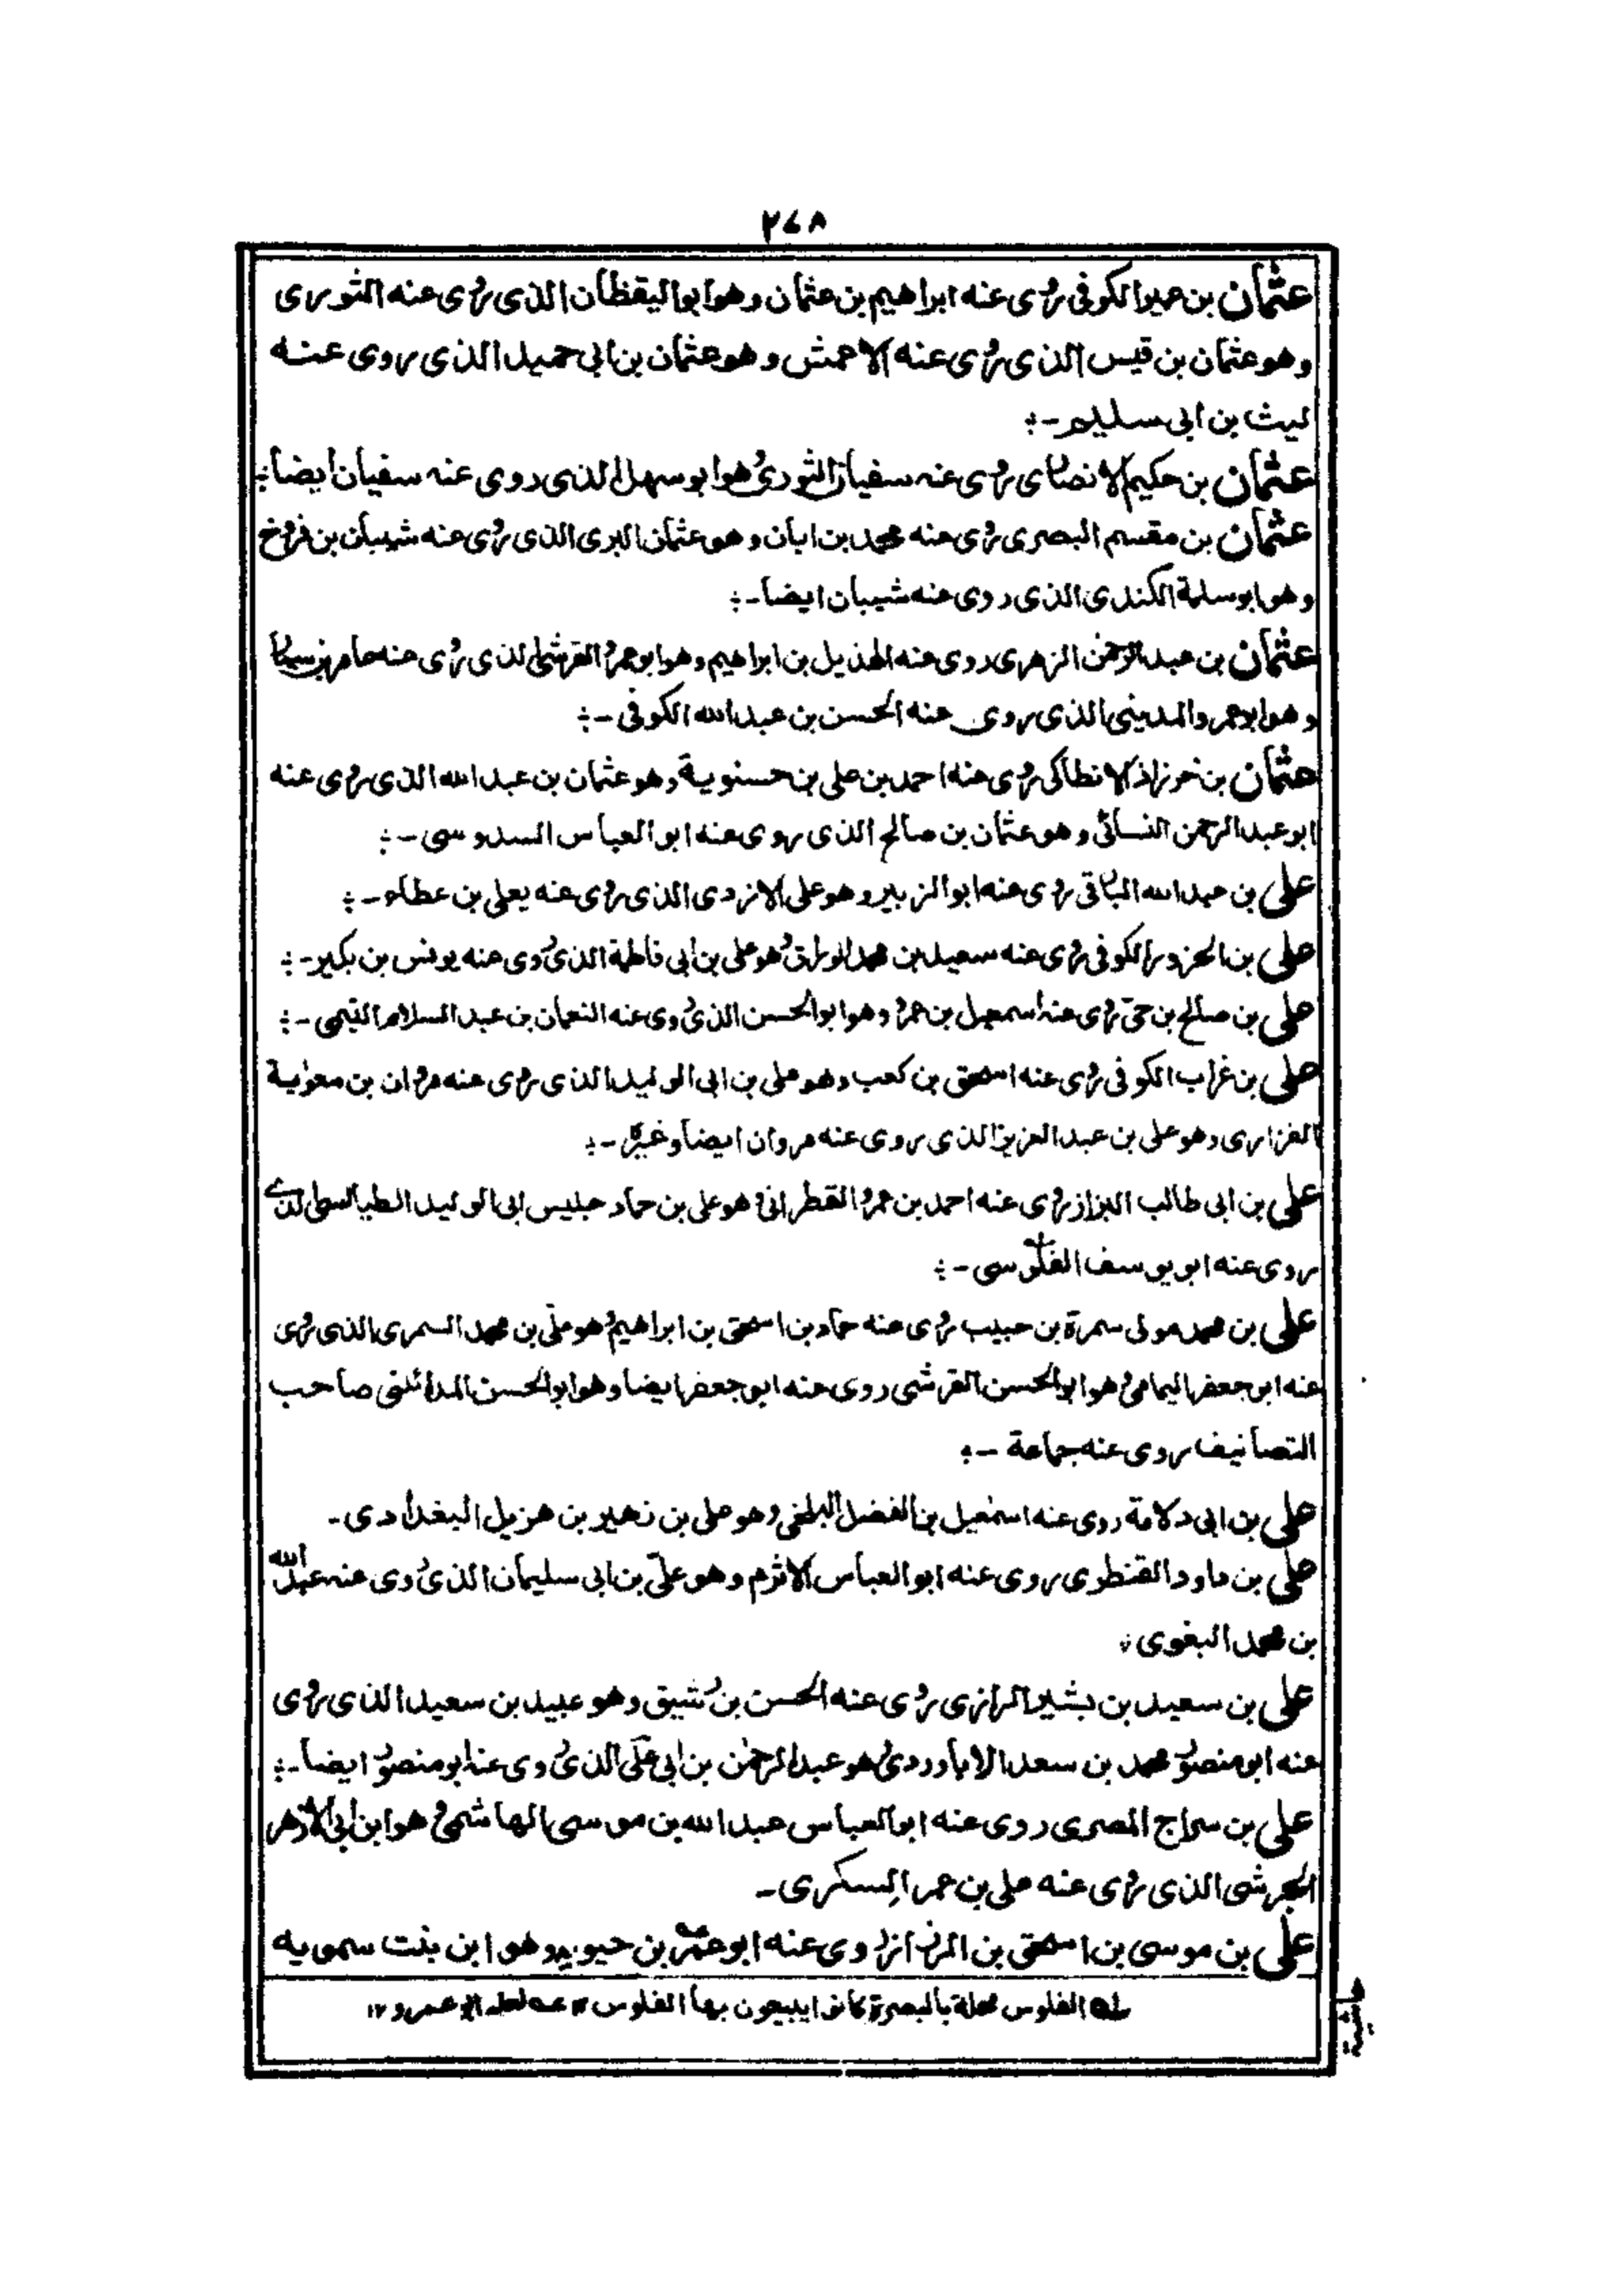 ٢٦٨
عثمان بن عمير الكوفى روى عنه ابراهيم بن عثمان وهو ابو اليقظان الذى روى عنه الثورى
وهو عثمان بن قيس الذى روى عنه الاعمش وهو عثمان بن ابى حميد الذى روى عنه
ليث بن ابى سليم -:
عثمان بن حكيم الانصارى روى عنه سفيان الثورى وهو ابو سهل الذى روى عنه سفيان ايضا:
عثمان بن مقسم البصرى روى عنه محمد بن ابان وهو عثمان البرى الذى روى عنه شيبان بن فروخ
وهو ابو سلمة الكندى الذى روى عنه شيبان ايضا -:
عثمان بن عبد الرحمن الزهرى روى عنه الهذيل بن ابراهيم وهو ابو عمرو القرشى الذى روى عنه عامر بن سيار
وهو ابو عمرو المدينى الذى روى عنه الحسن بن عبد الله الكوفى -:
عثمان بن خرزاذ الانطاكى روى عنه احمد بن على بن حسنوية وهو عثمان بن عبد الله الذى روى عنه
ابو عبد الرحمن النسائى وهو عثمان بن صالح الذى روى عنه ابو العباس السدوسى -:
على بن عبد الله البارقى روى عنه ابو الزبير وهو على الازدى الذى روى عنه يعلى بن عطاء -:
على بن الحزور الكوفى روى عنه سعيد بن محمد الوراق وهو على بن ابى فاطمة الذى روى عنه يونس بن بكير -:
على بن صالح بن حى روى عنه اسمعيل بن عمرو وهو ابو الحسن الذى روى عنه النعمان بن عبد السلام التيمى -:
على بن غراب الكوفى روى عنه اسحق بن كعب وهو على بن ابى الوليد الذى روى عنه مروان بن معوية
الفزارى وهو على بن عبد العزيز الذى روى عنه مروان ايضا وغيره -:
على بن ابى طالب البزاز روى عنه احمد بن عمرو القطرانى وهو على بن حماد جليس ابى الوليد الطيالسى الذى
روى عنه ابو يوسف الفلوسى -:
على بن محمد مولى سمرة بن حبيب روى عنه حماد بن اسحق بن ابراهيم وهو على بن محمد السمرى الذى روى
عنه ابو جعفر اليمامى وهو ابو الحسن القرشى روى عنه ابو جعفر ايضا وهو ابو الحسن المدائنى صاحب
التصانيف روى عنه جماعة -:
على بن ابى دلامة روى عنه اسمعيل بن الفضل البلخى وهو على بن زهير بن هزيل البغدادى -
على بن داود القنطرى روى عنه ابو العباس الاثرم وهو على بن ابى سليمان الذى روى عنه عبد الله
بن محمد البغوى
على بن سعيد بن بشير الرازى روى عنه الحسن بن رشيق وهو عبيد بن سعيد الذى روى
عنه ابو منصور محمد بن سعد الاباوردى وهو عبد الرحمن بن ابى على الذى روى عنه ابو منصور ايضا -:
على بن سراج المصرى روى عنه ابو العباس عبد الله بن موسى الهاشمى وهو ابن ابى الازهر
الجرشى الذى روى عنه على بن عمر السكرى -
على بن موسى بن اسحق بن الرزاز روى عنه ابو عمر بن حيويه وهو ابن بنت سمويه
له الفلوس محلة بالبصرة كانوا يبيعون بها الفلوس ١٢ عه لعله ابو عمرو ١٢
حاشية